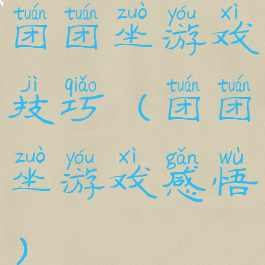 tuán tuán zuò yóu xì
团团坐游戏
jì qiǎo tuán tuán
技巧（团团
zuò yóu xì gǎn wù
坐游戏感悟
）